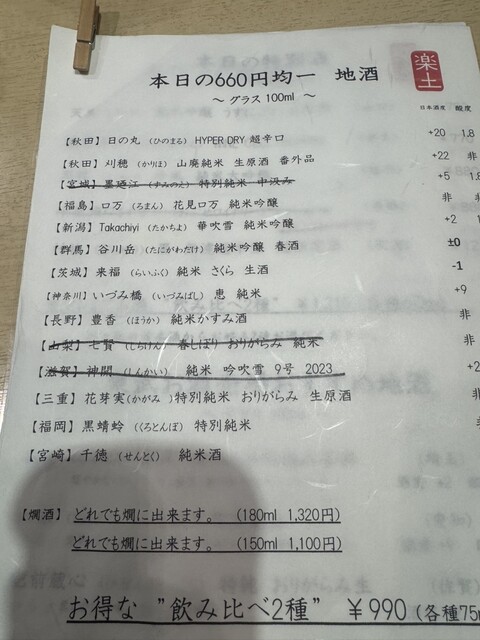 本日の660円均一 地酒
楽土
～ グラス 100ml ～
日本酒度 酸度
【秋田】日の丸 (ひのまる) HYPER DRY 超辛口 +20 1.8
【秋田】刈穂 (かりほ) 山廃純米 生原酒 番外品 +22 非
【宮城】墨廼江 (すみのえ) 特別純米 中汲み +5 1.8
【福島】ロ万 (ろまん) 花見ロ万 純米吟醸 非 非
【新潟】Takachiyi (たかちよ) 華吹雪 純米吟醸 +2
【群馬】谷川岳 (たにがわだけ) 純米吟醸 春酒 ±0
【茨城】来福 (らいふく) 純米 さくら 生酒 -1
【神奈川】いづみ橋 (いづみばし) 恵 純米 +9
【長野】豊香 (ほうか) 純米かすみ酒 非
【山梨】七賢 (しちけん) 春しぼり おりがらみ 純米 非
【滋賀】神開 (しんかい) 純米 吟吹雪 9号 2023 +2
【三重】花芽実(かがみ )特別純米 おりがらみ 生原酒 非
【福岡】黒蜻蛉 (くろとんぼ) 特別純米 非
【宮崎】千徳 (せんとく) 純米酒
【燗酒】どれでも燗に出来ます。 (180ml 1,320円)
どれでも燗に出来ます。 (150ml 1,100円)
お得な "飲み比べ2種" ￥990 (各種75ml